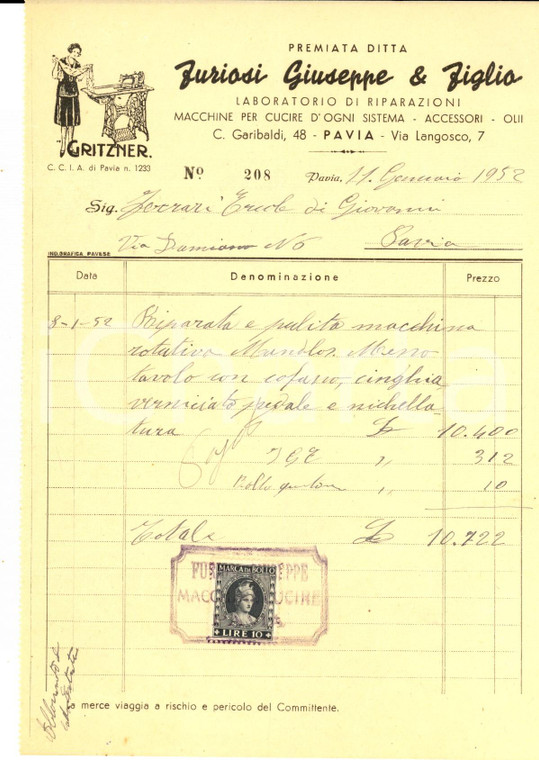 PREMIATA DITTA
Furiosi Giuseppe & Figlio
LABORATORIO DI RIPARAZIONI
MACCHINE PER CUCIRE D'OGNI SISTEMA - ACCESSORI - OLII
C. Garibaldi, 48 - PAVIA - Via Langosco, 7
GRITZNER.
C. C. I. A. di Pavia n. 1233
Nº 208 Pavia, 11 Gennaio 1952
Sig. Ferrari Ercole di Giovanni
Via Damiano Nº 6 Pavia
IND. GRAFICA PAVESE
Data Denominazione Prezzo
8-1-52 Riparata e pulita macchina
rotativa Mundlos. Messo
tavolo con cofano, cinghia
verniciato pedale e nichella
tura £ 10.400
IGE " 312
Bollo " 10
Totale £ 10.722
FUR EPPE
MARCA DA BOLLO
MAC UCIRE
LIRE 10
a merce viaggia a rischio e pericolo del Committente.